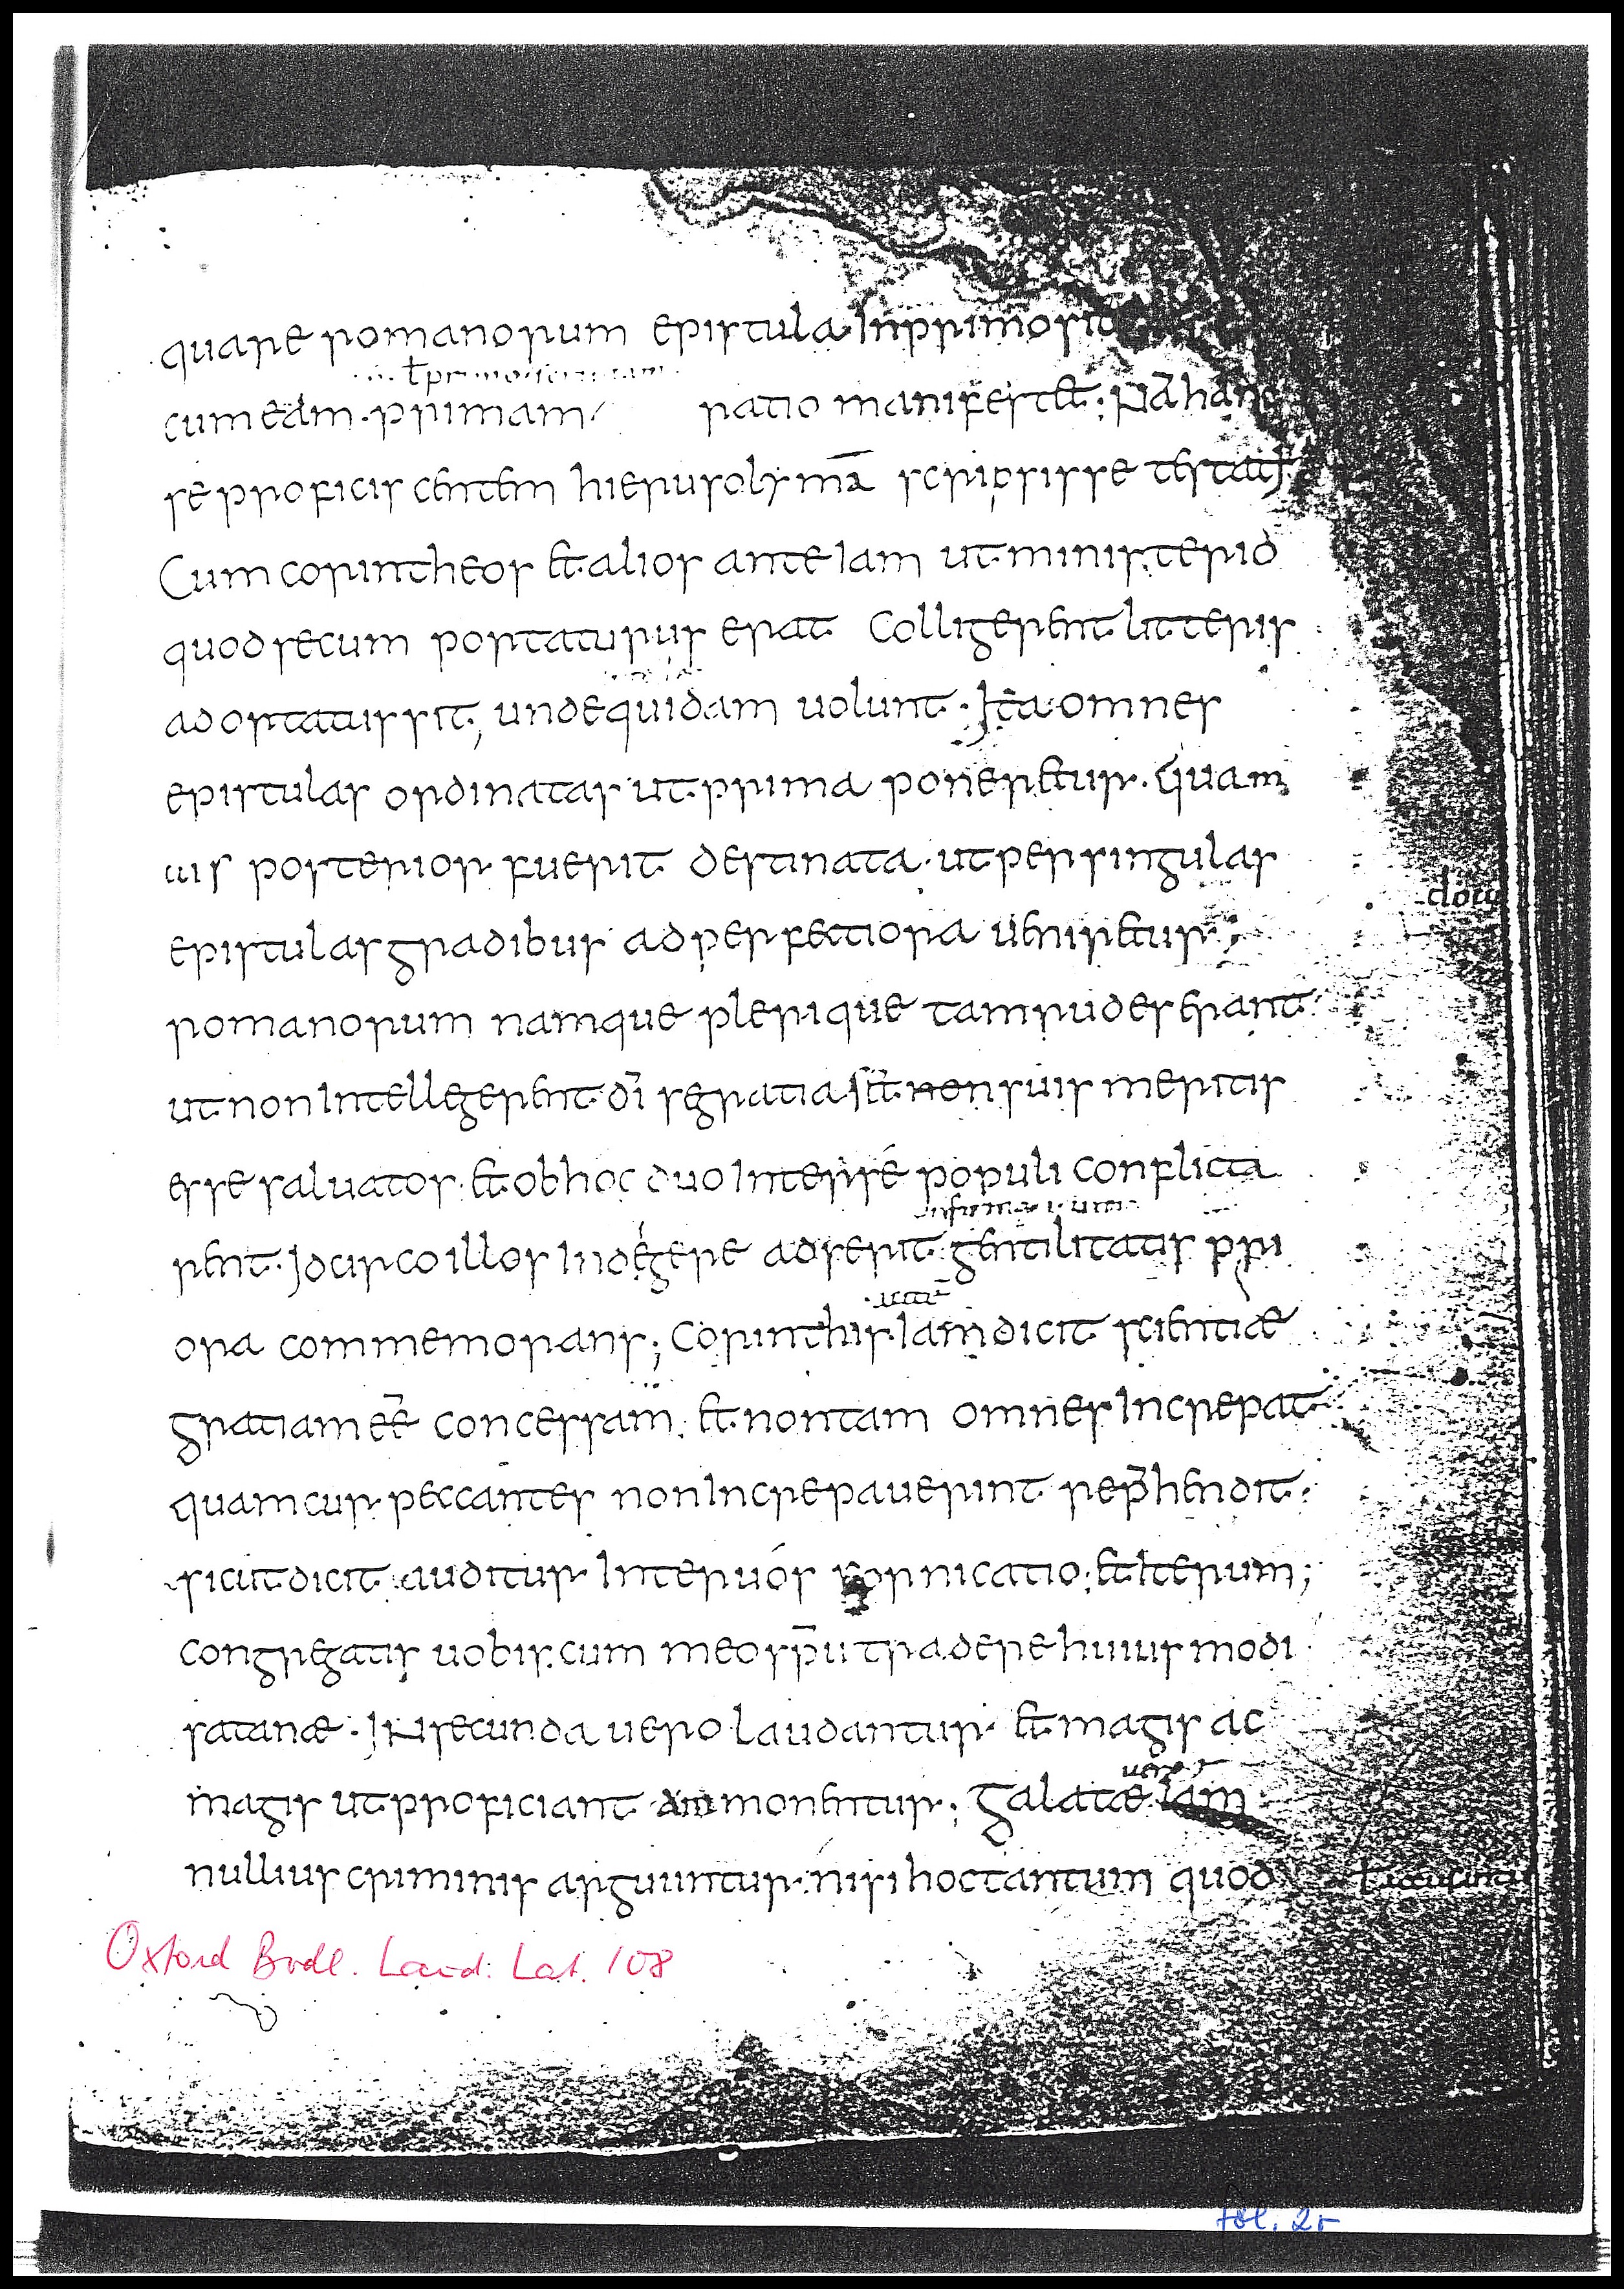 quare romanorum epistula Inprimo sit
cum eam primam ratio manifestet; Nā hanc
se proficiscentem hierusolymā scripsisse testat
Cum corintheos et alios ante Iam ut ministerio
quod secum portaturus erat Colligerent litteris
adortatus sit, unde quidam uolunt. Ita omnes
epistulas ordinatas ut prima poneretur. quam
uis posterior fuerit destinata. ut per singulas
epistulas gradibus ad perfectiora ueniretur;
romanorum namque plerique tam rudes erant
ut non Intellegerent d̄i se gratia et non suis meritis
esse saluatos. et ob hoc duo Inter se populi conflicta
rent. Idcirco illos Indegere adserit gentilitatis pri
ora commemorans; Corinthis Iam dicit scientiae
gratiam eē concessam. et non tam omnes Increpat
quam cur peccantes non Increpauerint rep̄hendit.
sicut dicit auditur Inter uos fornicatio; et Iterum;
congregatis uobis cum meo sp̄u tradere huius modi
satanæ. IN secunda uero laudantur et magis ac
uero
magis ut proficiant ammonentur; Galatæ Iam
nullius criminis arguuntur. nisi hoc tantum quod
Oxford Bodl. Laud. Lat. 108
fol. 2r